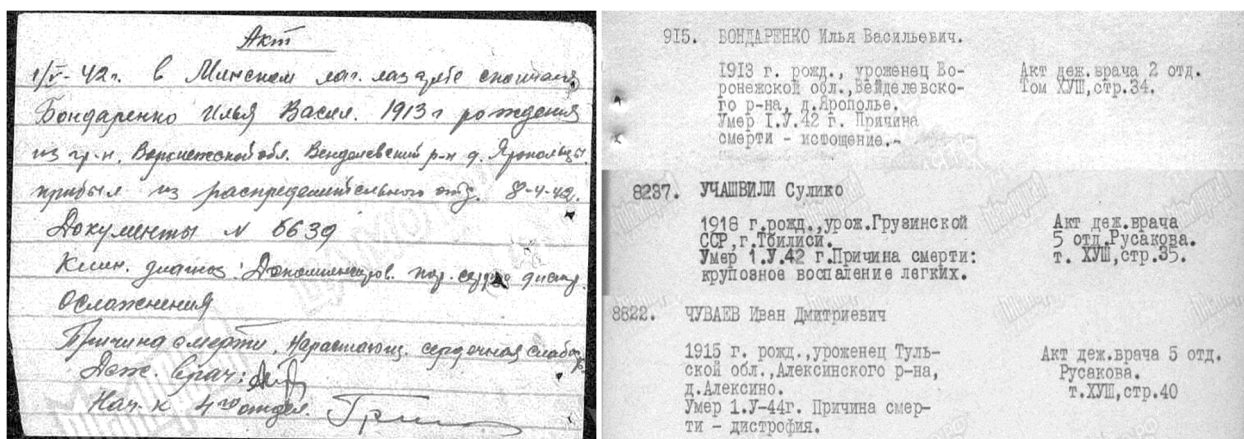 Акт
1/V-42г. в Минском лаг. лазарете скончался
Бондаренко Илья Васил. 1913 г рождения
из гр-н. Воронежской обл. Венделевский р-н д. Яропольцы
прибыл из распределительного отд. 8-4-42.
Документы N 5639
Клин. диагноз: сердца
Осложнения
Причина смерти. Нарастающ. сердечная слабо
Деж. врач:
Нач-к 4го отдел.
915. БОНДАРЕНКО Илья Васильевич.
1913 г. рожд., уроженец Во-
ронежской обл.,Вейделевско-
го р-на, д.Ярополье.
Умер I.У.42 г. Причина
смерти - истощение.-
Акт деж.врача 2 отд.
Том ХУШ,стр.34.
8237. УЧАШВИЛИ Сулико
1918 г.рожд.,урож.Грузинской
ССР,г.Тбилиси.
Умер 1.У.42 г.Причина смерти:
крупозное воспаление легких.
Акт деж.врача
5 отд.Русакова.
т. ХУШ,стр.35.
8822. ЧУВАЕВ Иван Дмитриевич
1915 г. рожд.,уроженец Туль-
ской обл.,Алексинского р-на,
д.Алексино.
Умер 1.У-44г. Причина смер-
ти - дистрофия.
Акт деж.врача 5 отд.
Русакова.
т.ХУШ,стр.40